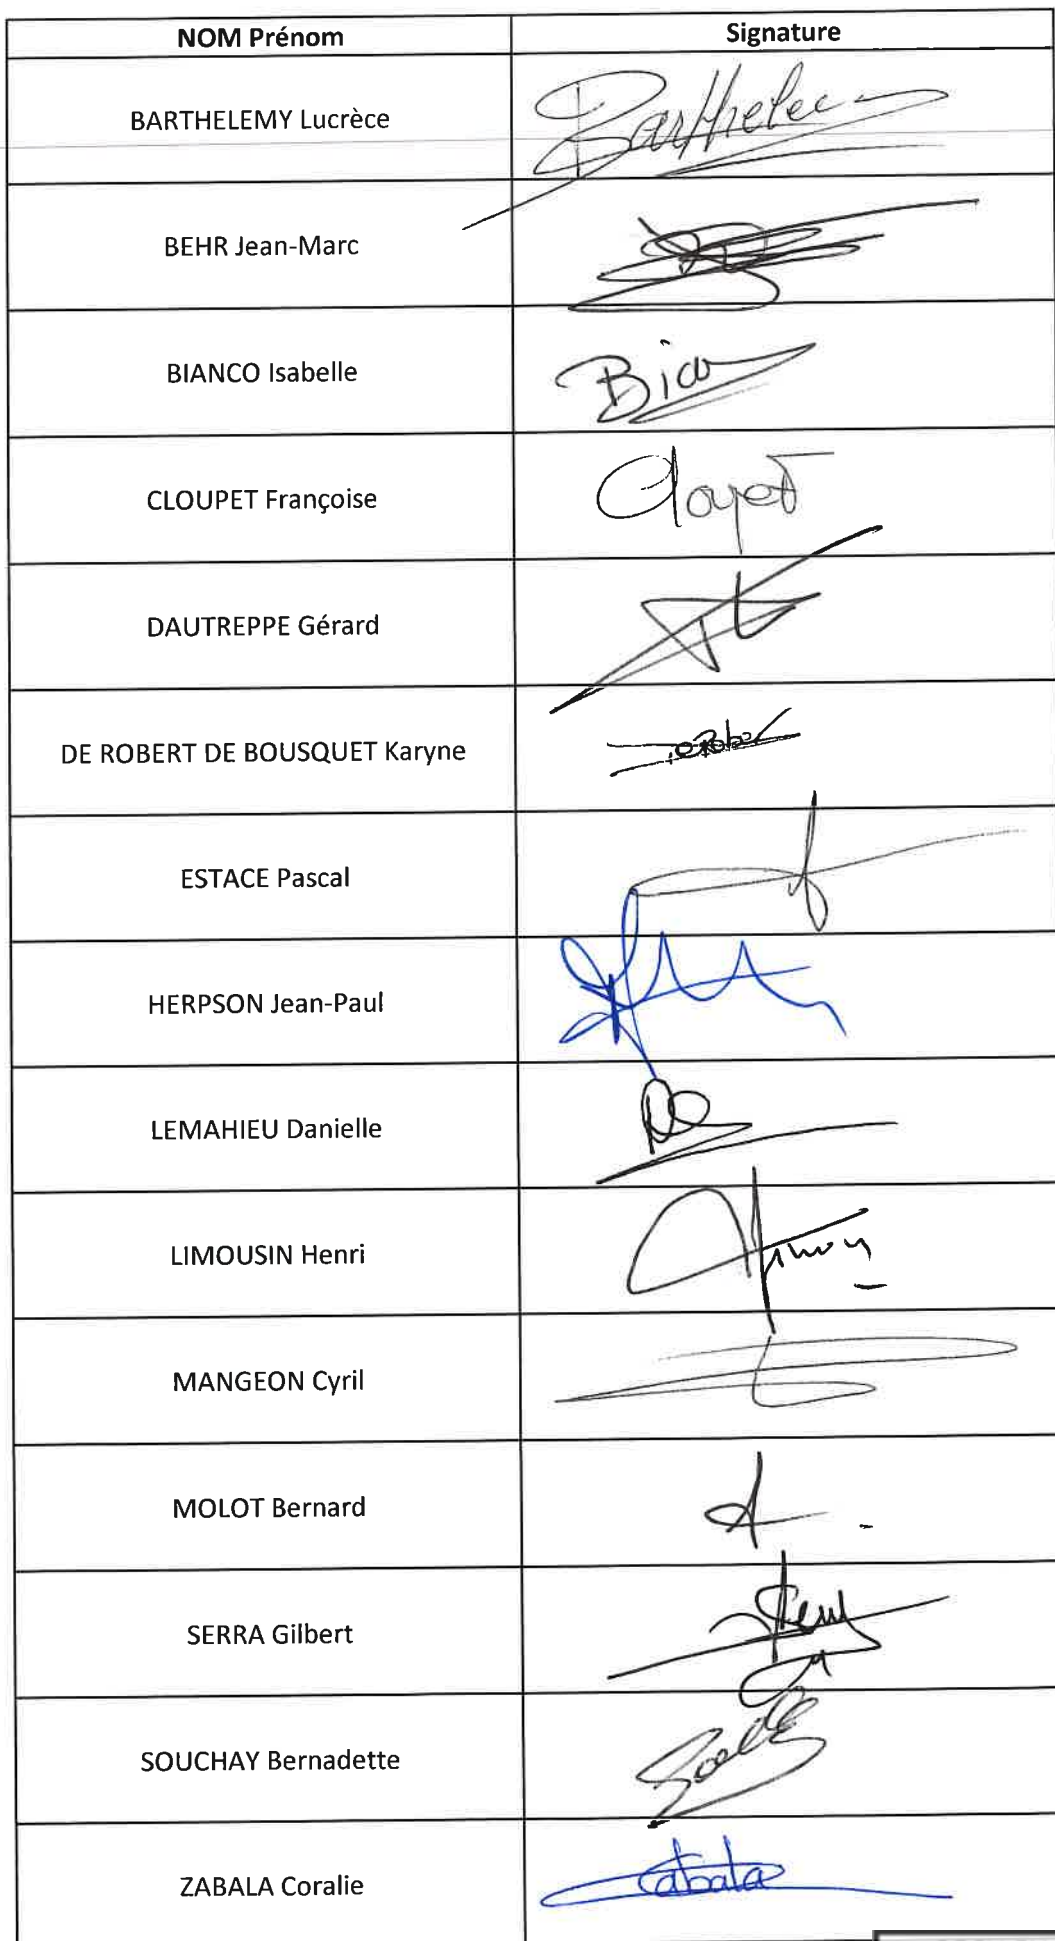 NOM Prénom Signature
BARTHELEMY Lucrèce Barthelec
BEHR Jean-Marc
BIANCO Isabelle Bian
CLOUPET Françoise
DAUTREPPE Gérard
DE ROBERT DE BOUSQUET Karyne
ESTACE Pascal
HERPSON Jean-Paul
LEMAHIEU Danielle
LIMOUSIN Henri
MANGEON Cyril
MOLOT Bernard
SERRA Gilbert
SOUCHAY Bernadette
ZABALA Coralie Zabala